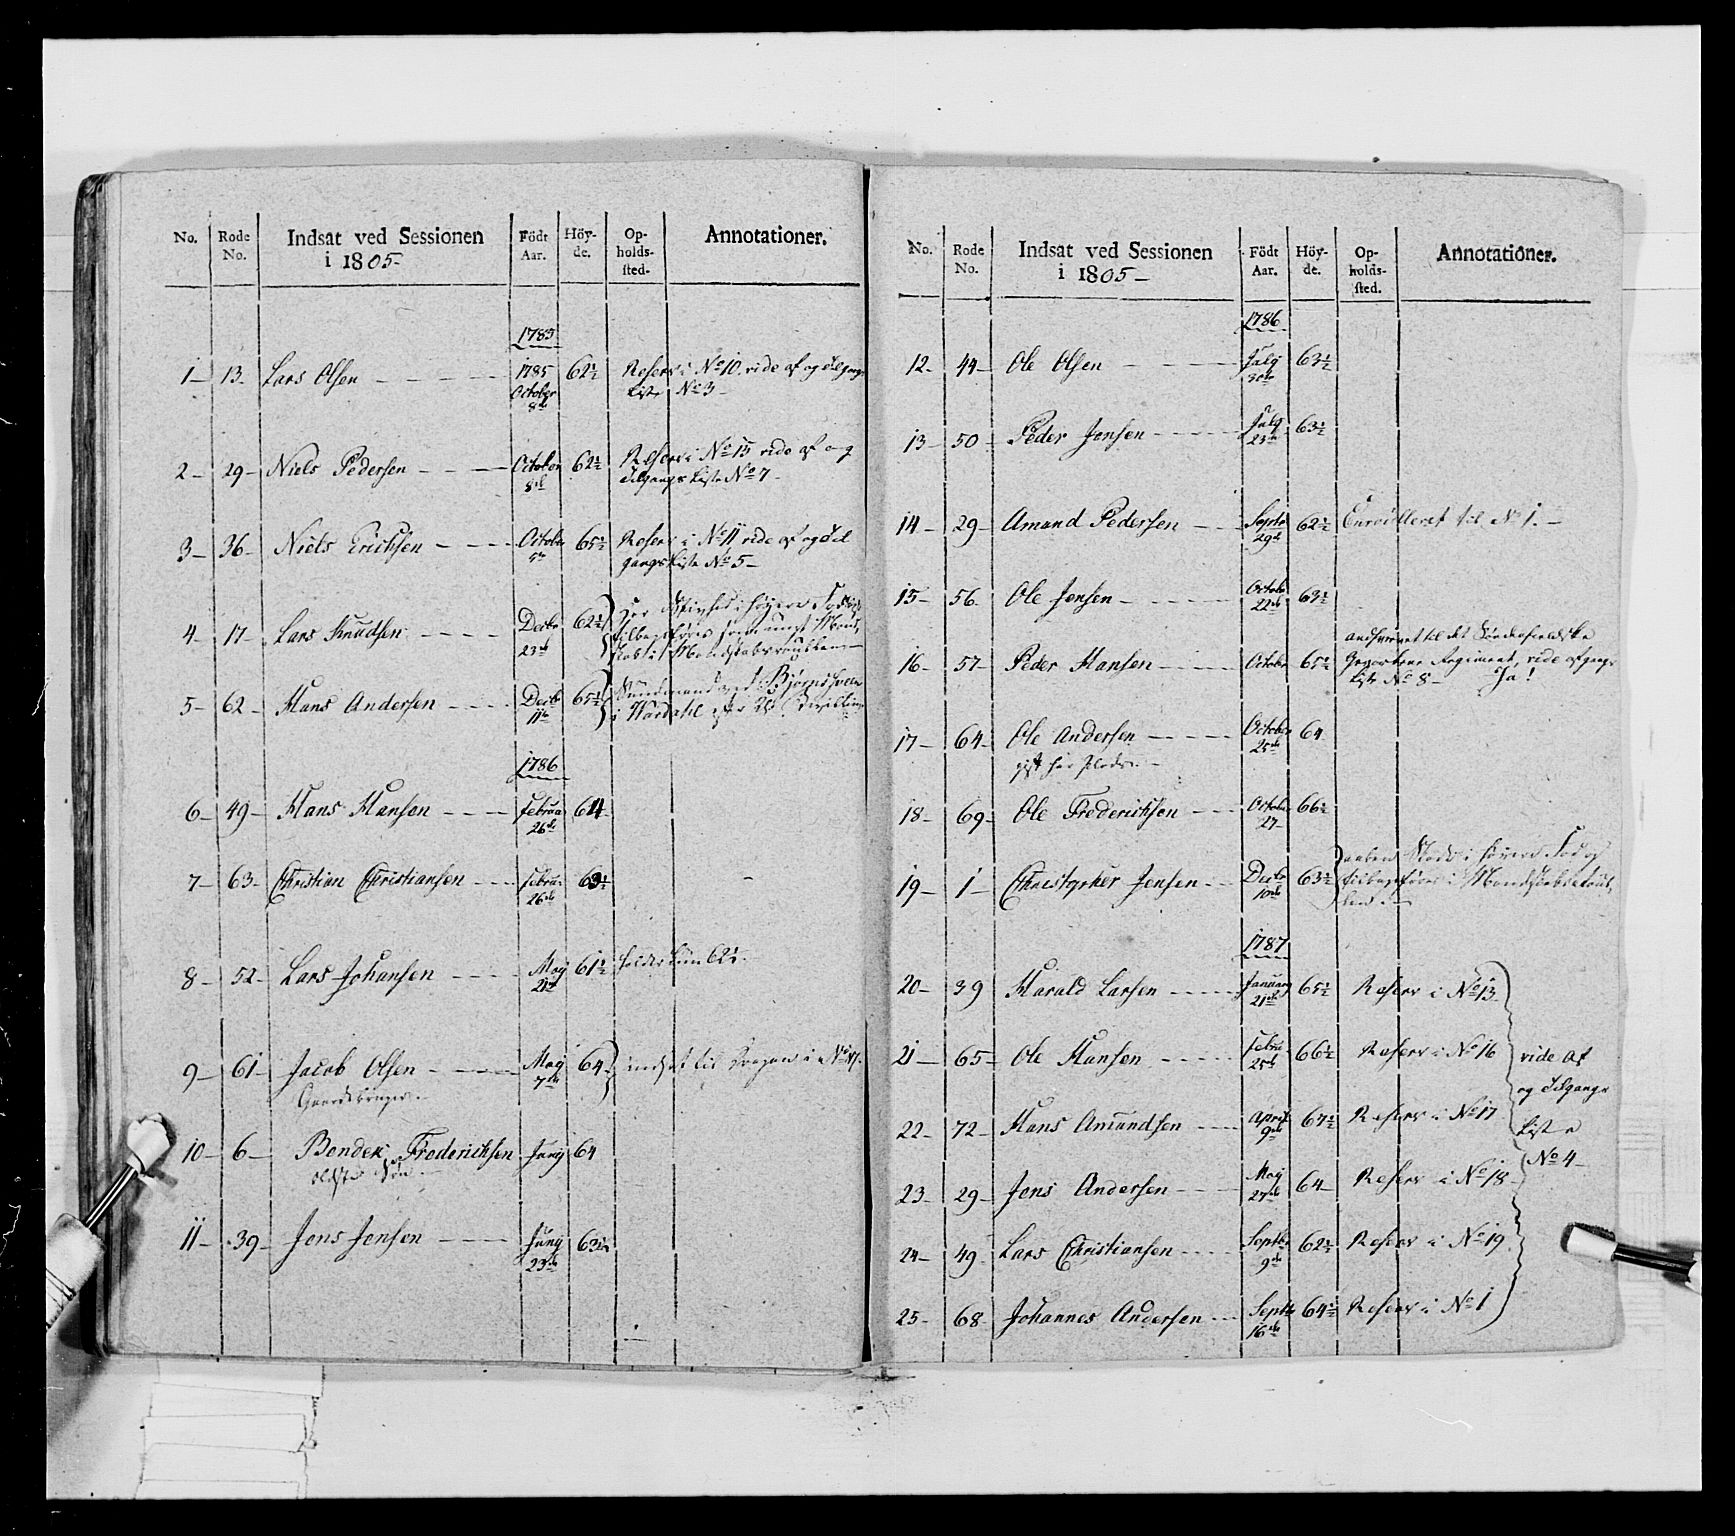 No. Rode No. Indsat ved Sessionen i 1805- Födt Aar. Höy-de. Op-holds-sted. Annotationer.
1783
1- 13- Lars Olsen 1785 October 8de 62½ Reserv i No 10. vide af og tilgangs Liste No 3-
2- 29- Niels Pedersen October 8de 62½ Reserv i No 15 vide af og tilgangs Liste No 7-
3- 36- Niels Erichsen October 5te 65½ Reserv i No 11 vide af og til gangs Liste No 5-
4- 17- Lars Knudsen Decbr 23de 62½
5- 62- Hans Andersen Decbr 11te 65½
1786
6- 49- Hans Hansen Februar 26de 64
7- 63- Christian Christiansen Februar 26de 63½
8- 52- Lars Johansen May 21de 61½ holder kun 62½.
9- 61- Jacob Olsen May 7de 64 indsat til Dragon i No 47.
Gaardbruger.
10- 6- Bendix Frederichsen Juny 64
eldste Søn.
11- 39- Jens Jensen Juny 23de 63½
No. Rode No. Indsat ved Sessionen i 1805- Födt Aar. Höy-de. Op-holds-sted. Annotationer.
1786
12- 44- Ole Olsen July 30te 63½
13- 50- Peder Jensen July 23de 63½
14- 29- Amund Pedersen Septr 29de 62½ Enroulleret til No 1.-
15- 56- Ole Jensen Octobr 22de 63½
16- 57- Peder Hansen Octobr 65½ Regiment, vide afgangs Liste No 8- Ja!
17- 64- Ole Andersen October 25de 64
18- 69- Ole Frederichsen Octobr 27- 66½
19- 1- Christopher Jensen Decbr 10de 63½
1787
20- 39 Harald Larsen January 21de 65½ Reserv i No 13-
21- 65- Ole Hansen Februar 25de 66½ Reserv i No 16
22- 72- Hans Amundsen April 9de 67½ Reserv i No 17
23- 29- Jens Andersen May 27de 64- Reserv i No 18-
24- 49- Lars Christiansen Septbr 9de 62½ Reserv i No 19
25- 68- Johannes Andersen Septbr 16de 64½ Reserv i No 1
vide af
og Tilgangs
Liste
No 4-